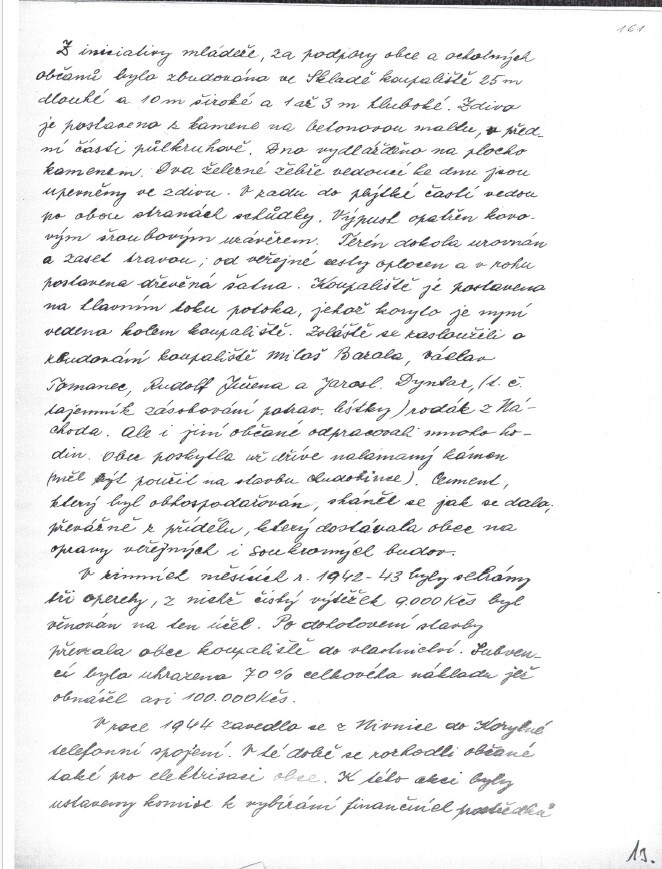 161
Z iniciativy mládeže, za podpory obce a ochotných
občanů bylo zbudováno ve Skladě koupaliště 25 m
dlouhé a 10 m široké a 1 až 3 m hluboké. Zdivo
je postaveno z kamene na betonovou maltu, v před-
ní části půlkruhově. Dno vydlážděno na plocho
kamenem. Dva železné žebře vedoucí ke dnu jsou
upevněny ve zdivu. V zadu do plytké části vedou
po obou stranách schůdky. Výpust opatřen kovo-
vým šroubovým uzávěrem. Terén dokola urovnán
a zaset travou; od veřejné cesty oplocen a v rohu
postavena dřevěná šatna. Koupaliště je postaveno
na hlavním toku potoka, jehož koryto je nyní
vedeno kolem koupaliště. Zvláště se zasloužili o
zbudování koupaliště Miloš Bazala, Václav
Tomanec, Rudolf a Jarosl. Dyntar, (t. č.
tajemník zásobování potrav. lístky) rodák z Ná-
choda. Ale i jiní občané odpracovali mnoho ho-
din. Obec poskytla už dříve nalámaný kámen
(měl být použit na stavbu chudobince). Cement,
který byl obhospodařován, sháněl se jak se dalo,
převážně z přídělu, který dostávala obec na
opravy veřejných i soukromých budov.
V zimních měsících r. 1942-43 byly sehrány
tři operety, z nichž čistý výtěžek 9.000 Kčs byl
věnován na ten účel. Po dohotovení stavby
převzala obec koupaliště do vlastnictví. Subven-
cí bylo uhrazeno 70% celkového nákladu jež
obnášel asi 100.000 Kčs.
V roce 1944 zavedlo se z Nivnice do Korytné
telefonní spojení. V té době se rozhodli občané
také pro elektrisaci obce. K této akci byly
ustaveny komise k vybírání finančních prostředků
13.